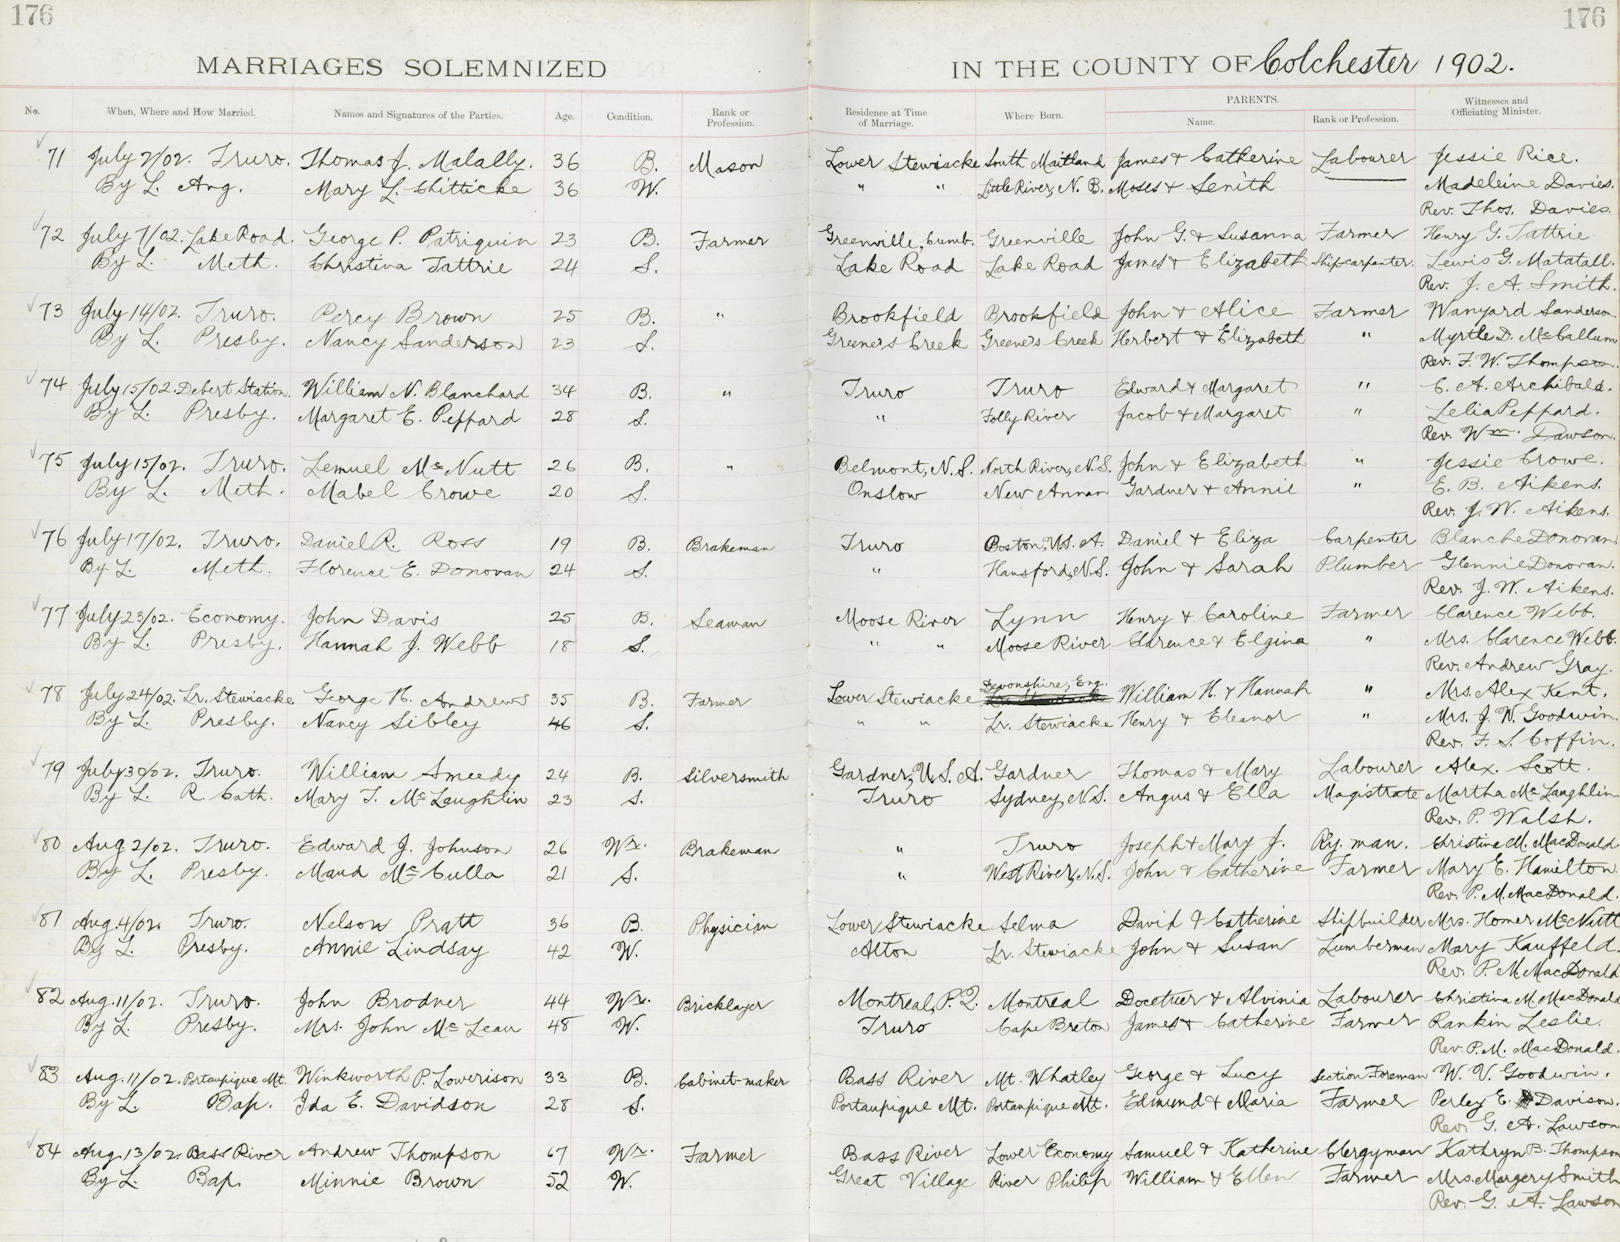 176 176
MARRIAGES SOLEMNIZED IN THE COUNTY OF Colchester 1902.
No. When, Where and How Married. Names and Signatures of the Parties. Age. Condition. Rank or Profession. Residence at Time of Marriage. Where Born. PARENTS. Name. Rank or Profession. Witnesses and Officiating Minister.
71 July 2/02. Truro. Thomas J. Malally. 36 B. Mason Lower Stewiacke South Maitland James & Catherine Labourer Jessie Rice.
By L. Ang. Mary L. Chitticke 36 W. " " Little River, N. B. Moses & Senith Madeleine Davies.
Rev. Thos. Davies.
72 July 7/02. Lake Road. George P. Patriquin 23 B. Farmer Greenville, Cumb. Greenville John G. & Susanna Farmer Henry G. Tattrie
By L. Meth. Christena Tattrie 24 S. Lake Road Lake Road James & Elizabeth Ship-carpenter. Lewis G. Matatall.
Rev. J. A. Smith.
73 July 14/02. Truro. Percy Brown 25 B. " Brookfield Brookfield John & Alice Farmer Wanyard Sanderson
By L. Presby. Nancy Sanderson 23 S. Greene's Creek Greene's Creek Herbert & Elizabeth " Myrtle D. McCallum
Rev. F. W. Thompson.
74 July 15/02. Debert Station. William N. Blanchard 34 B. " Truro Truro Edward & Margaret " C. A. Archibald.
By L. Presby. Margaret E. Peppard 28 S. " Folly River Jacob & Margaret " Lelia Peppard.
Rev. Wm. Dawson.
75 July 15/02. Truro. Lemuel McNutt 26 B. " Belmont, N. S. North River, N.S. John & Elizabeth " Jessie Crowe.
By L. Meth. Mabel Crowe 20 S. Onslow New Annan Gardner & Annie " E. B. Aikens.
Rev. J. W. Aikens.
76 July 17/02. Truro. Daniel R. Ross 19 B. Brakeman Truro Boston, U.S. A. Daniel & Eliza Carpenter Blanche Donovan
By L. Meth. Florence E. Donovan 24 S. " Hansford, N.S. John & Sarah Plumber Glennie Donovan.
Rev. J. W. Aikens.
77 July 23/02. Economy. John Davis 25 B. Seaman Moose River Lynn Henry & Caroline Farmer Clarence Webb.
By L. Presby. Hannah J. Webb 18 S. " " Moose River Clarence & Elgina " Mrs. Clarence Webb.
Rev. Andrew Gray.
78 July 24/02. Lr. Stewiacke George H. Andrews 35 B. Farmer Lower Stewiacke Devonshire, Eng. William H. & Hannah " Mrs. Alex Kent.
By L. Presby. Nancy Sibley 46 S. " " Lr. Stewiacke Henry & Eleanor " Mrs. J. W. Goodwin.
Rev. F. S. Coffin.
79 July 30/02. Truro. William Smeedy 24 B. Silversmith Gardner, U. S. A. Gardner Thomas & Mary Labourer Alex. Scott.
By L. R. Cath. Mary T. McLaughlin 23 S. Truro Sydney, N.S. Angus & Ella Magistrate Martha McLaughlin
Rev. P. Walsh.
80 Aug 2/02. Truro. Edward J. Johnson 26 Wr. Brakeman " Truro Joseph & Mary J. Ry. man. Christina M. MacDonald
By L. Presby. Maud McCulla 21 S. " West River, N.S. John & Catherine Farmer Mary E. Hamilton
Rev. P. M. MacDonald.
81 Aug. 4/02. Truro. Nelson Pratt 36 B. Physician Lower Stewiacke Selma David & Catherine Shipbuilder Mrs. Homer McNutt
By L. Presby. Annie Lindsay 42 W. Alton Lr. Stewiacke John & Susan Lumberman Mary Kauffeld.
Rev. P. M. MacDonald
82 Aug. 11/02. Truro. John Brodner 44 Wr. Bricklayer Montreal, P. Q. Montreal & Alvinia Labourer Christina M. MacDonald
By L. Presby. Mrs. John McLean 48 W. Truro Cape Breton James & Catherine Farmer Rankin Leslie.
Rev. P. M. MacDonald.
83 Aug. 11/02. Portaupique Mt. Winkworth P. Lowerison 33 B. Cabinet-maker Bass River Mt. Whatley George & Lucy Section Foreman W. V. Goodwin.
By L. Bap. Ida E. Davidson 28 S. Portaupique Mt. Portaupique Mt. Edmund & Maria Farmer Perley E. Davison.
Rev. G. A. Lawson
84 Aug. 13/02. Bass River Andrew Thompson 67 Wr. Farmer Bass River Lower Economy Samuel & Katherine Clergyman Kathryn B. Thompson
By L. Bap. Minnie Brown 52 W. Great Village River Philip William & Ellen Farmer Mrs. Margery Smith
Rev. G. A. Lawson